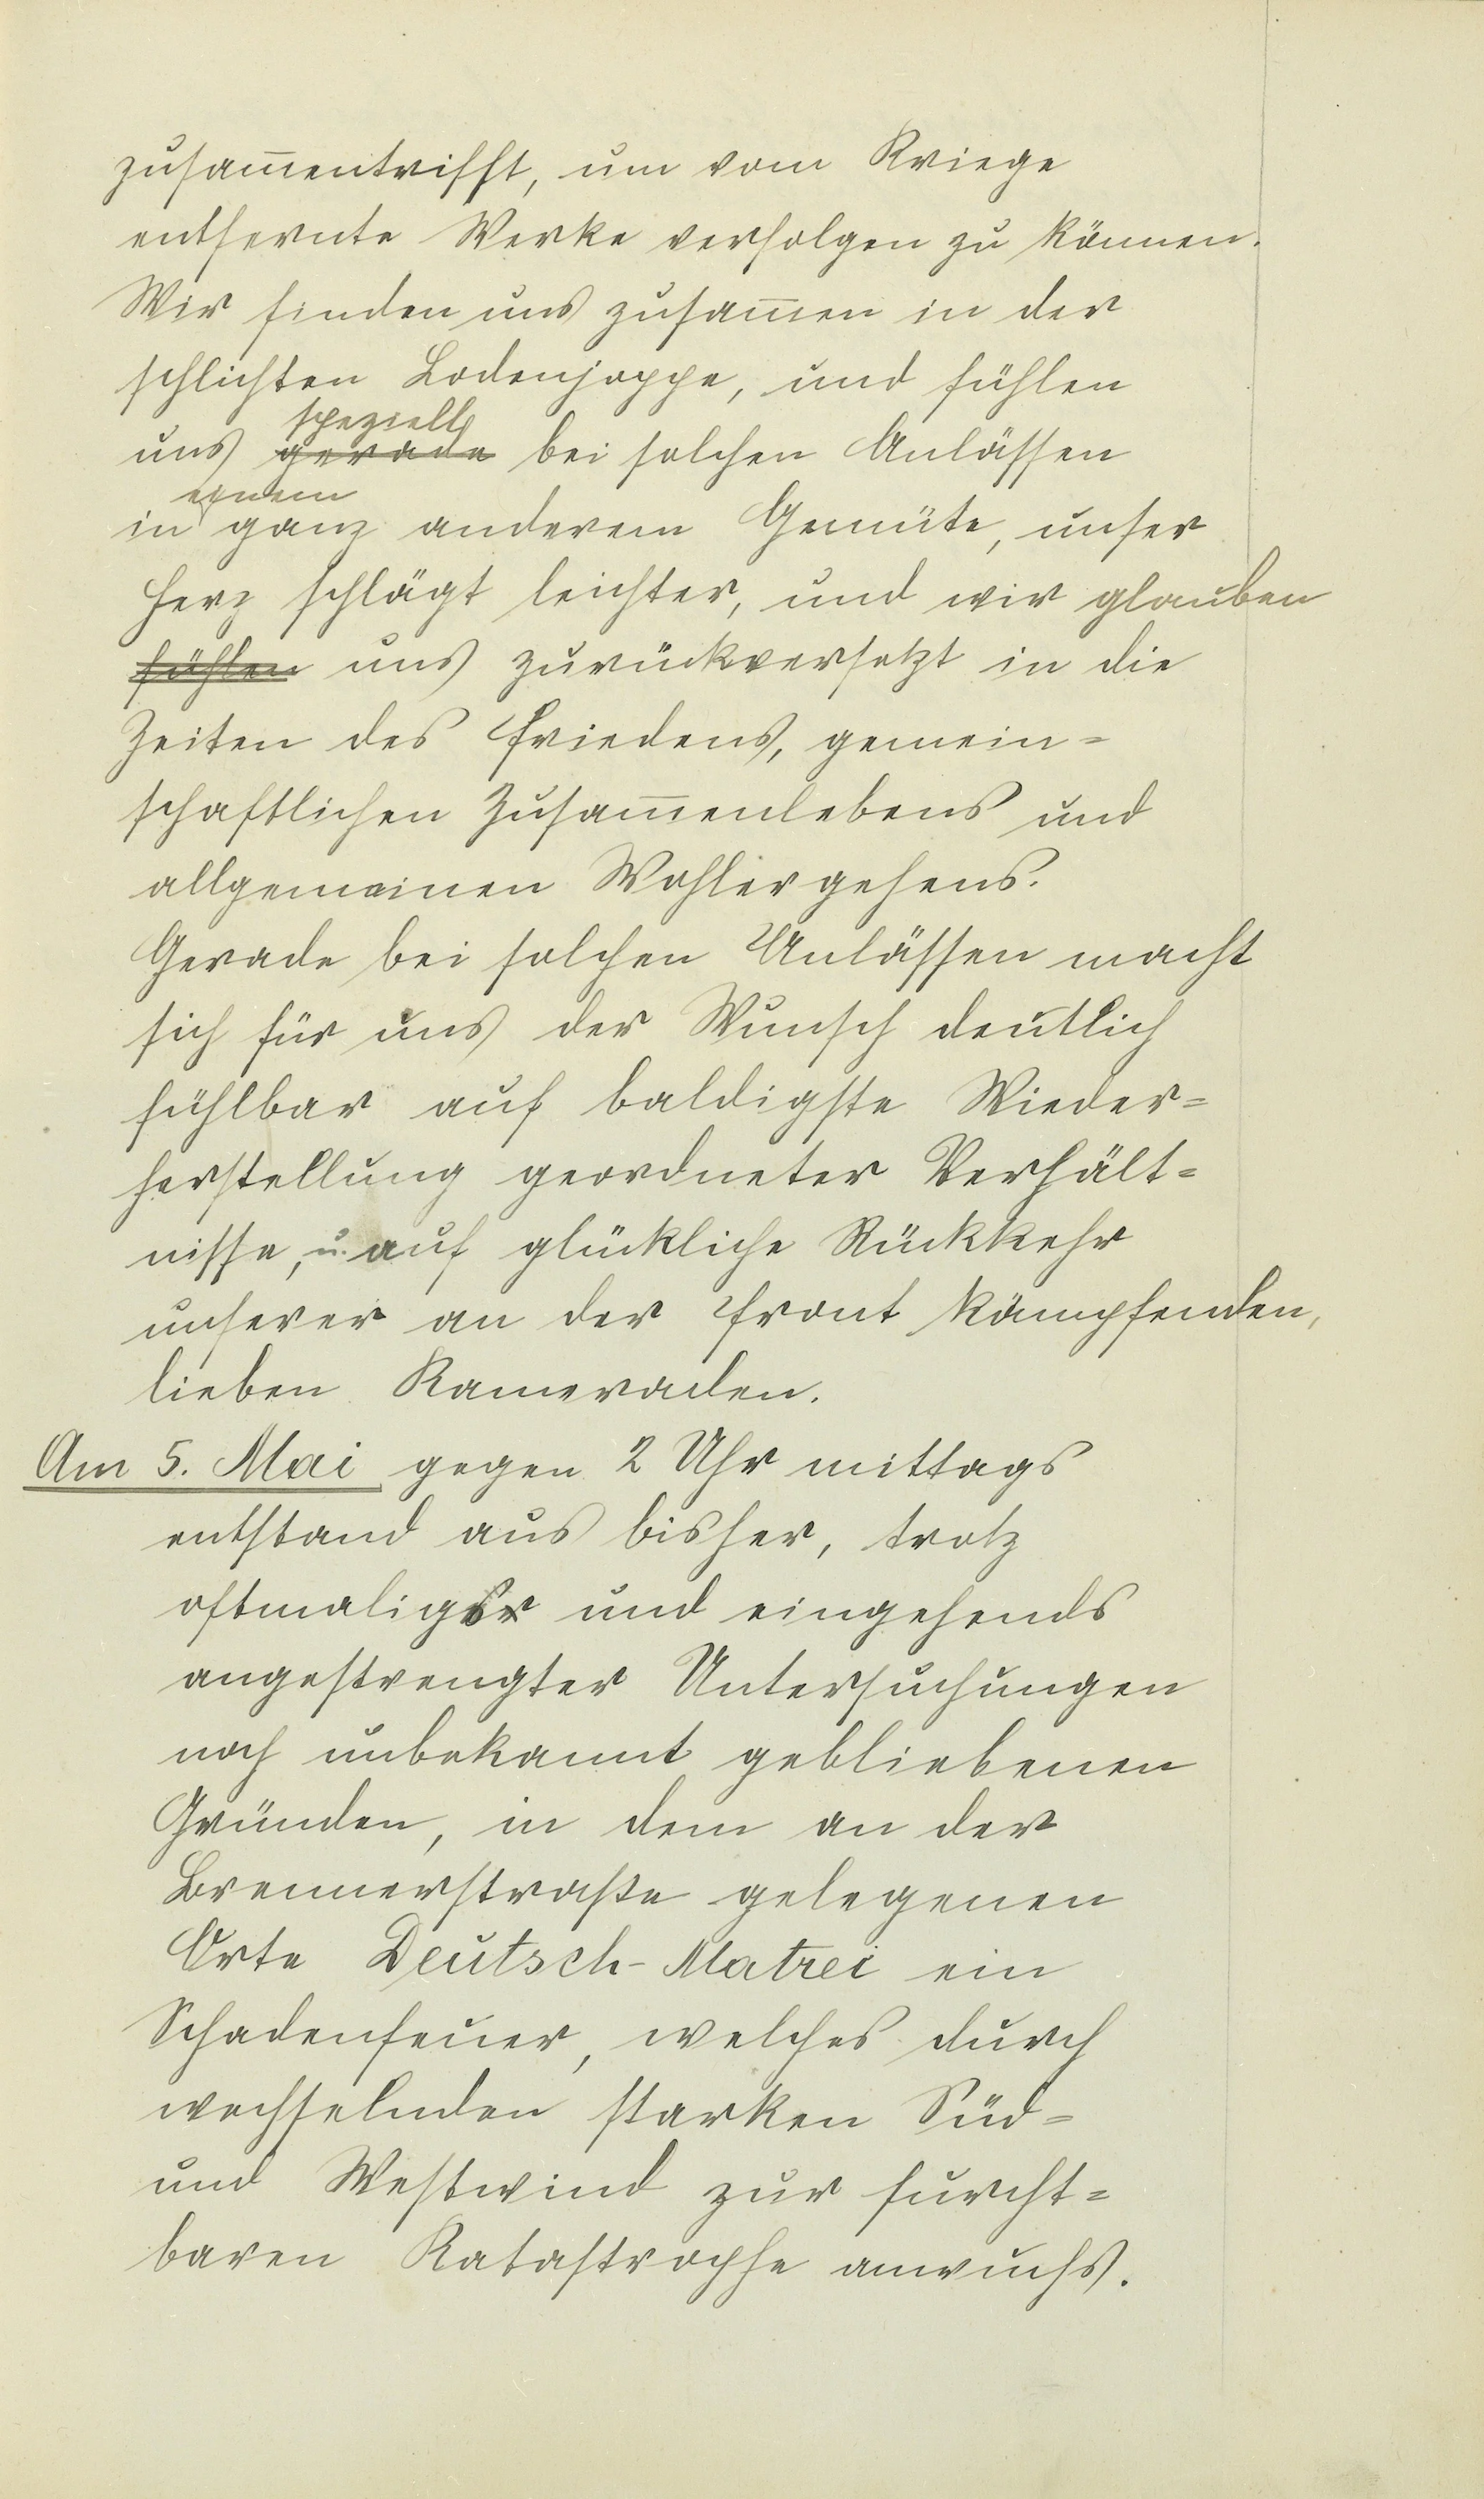 zusam̅entrifft, um vom Kriege
entfernte Werke verfolgen zu können.
Wir finden uns zusam̅en in der
schlichten Lodenjoppe, und fühlen
speziell
uns gerade bei solchen Anlässen
einem
in ganz anderem Gemüte, unser
Herz schlägt leichter, und wir glauben
fühlen uns zurückversetzt in die
Zeiten des Friedens, gemein=
schaftlichen Zusam̅enlebens und
allgemeinen Wohlergehens.
Gerade bei solchen Anlässen macht
sich für uns der Wunsch deutlich
fühlbar auf baldigste Wieder=
herstellung geordneter Verhält=
nisse, u. auf glückliche Rückkehr
unserer an der Front kämpfenden,
lieben Kameraden.
Am 5. Mai gegen 2 Uhr mittags
entstand aus bisher, trotz
oftmaliger und eingehends
angestrengter Untersuchungen
noch unbekannt gebliebenen
Gründen, in dem an der
Brennerstraße gelegenen
Orte Deutsch-Matrei ein
Schadenfeuer, welches durch
wechselnden starken Süd=
und Westwind zur furcht=
baren Katastrophe anwuchs.